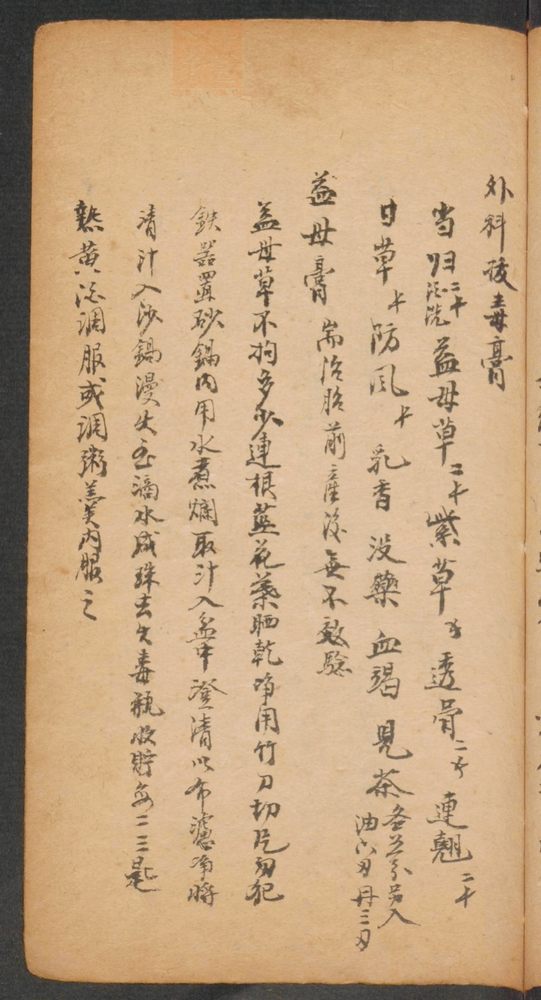 外科拔毒膏
当归二十酒洗 益母草二十 紫草 透骨 連翹二十
甘草 防风 乳香 没藥 血竭 児茶各三分另入
油六刄丹三刄
益母膏 耑治胎前產後無不效驗
益母草不拘多少連根莖花葉晒乾净用竹刀切片勿犯
鉄器置砂鍋內用水煮爛取汁入盆中澄清以布濾净將
清汁入沙鍋漫火至滴水成珠去火毒瓶收貯每二三匙
熱黃酒調服或調粥羹內服之